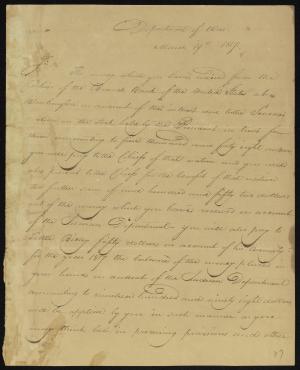 Department of War
March 19th 1819.
Sir,
The money which you have received from the
Cashier of the Branch Bank of the United States at
Washington on account of the interest due to the Seneca's
on the Stock held by the President in trust for
them amounting to four thousand and forty eight dollars
you will pay to the Chiefs of that nation and you will
also pay to the Chiefs for the benefit of that nation
the further sum of nine hundred and fifty two dollars
out of the money which you have received on account
of the Indian Department. You will also pay to
Little Billy fifty dollars on account of his annuity
for the year 1819 the balance of the money placed in
your hands on account of the Indian Department
amounting to nineteen hundred and ninety eight dollars
will be applied by you in such manner as you
may think best in procuring provisions and other